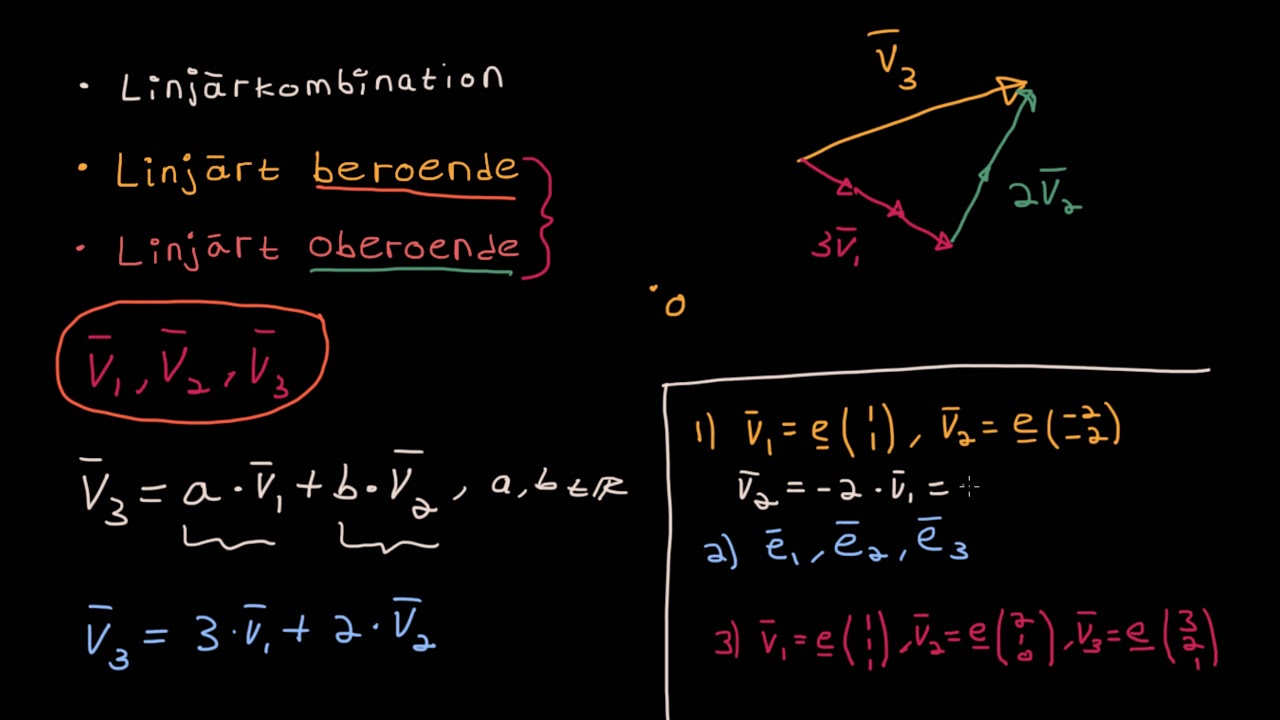 • Linjärkombination
• Linjärt beroende
• Linjärt oberoende
v̄₁, v̄₂, v̄₃
v̄₃ = a · v̄₁ + b · v̄₂, a, b ∈ ℝ
v̄₃ = 3 · v̄₁ + 2 · v̄₂
v̄₃
2v̄₂
3v̄₁
0
1) v̄₁ = e̲ (1 1), v̄₂ = e̲ (-2 -2)
v̄₂ = -2 · v̄₁ =
2) ē₁, ē₂, ē₃
3) v̄₁ = e̲ (1 1 1), v̄₂ = e̲ (2 1 0), v̄₃ = e̲ (3 2 1)